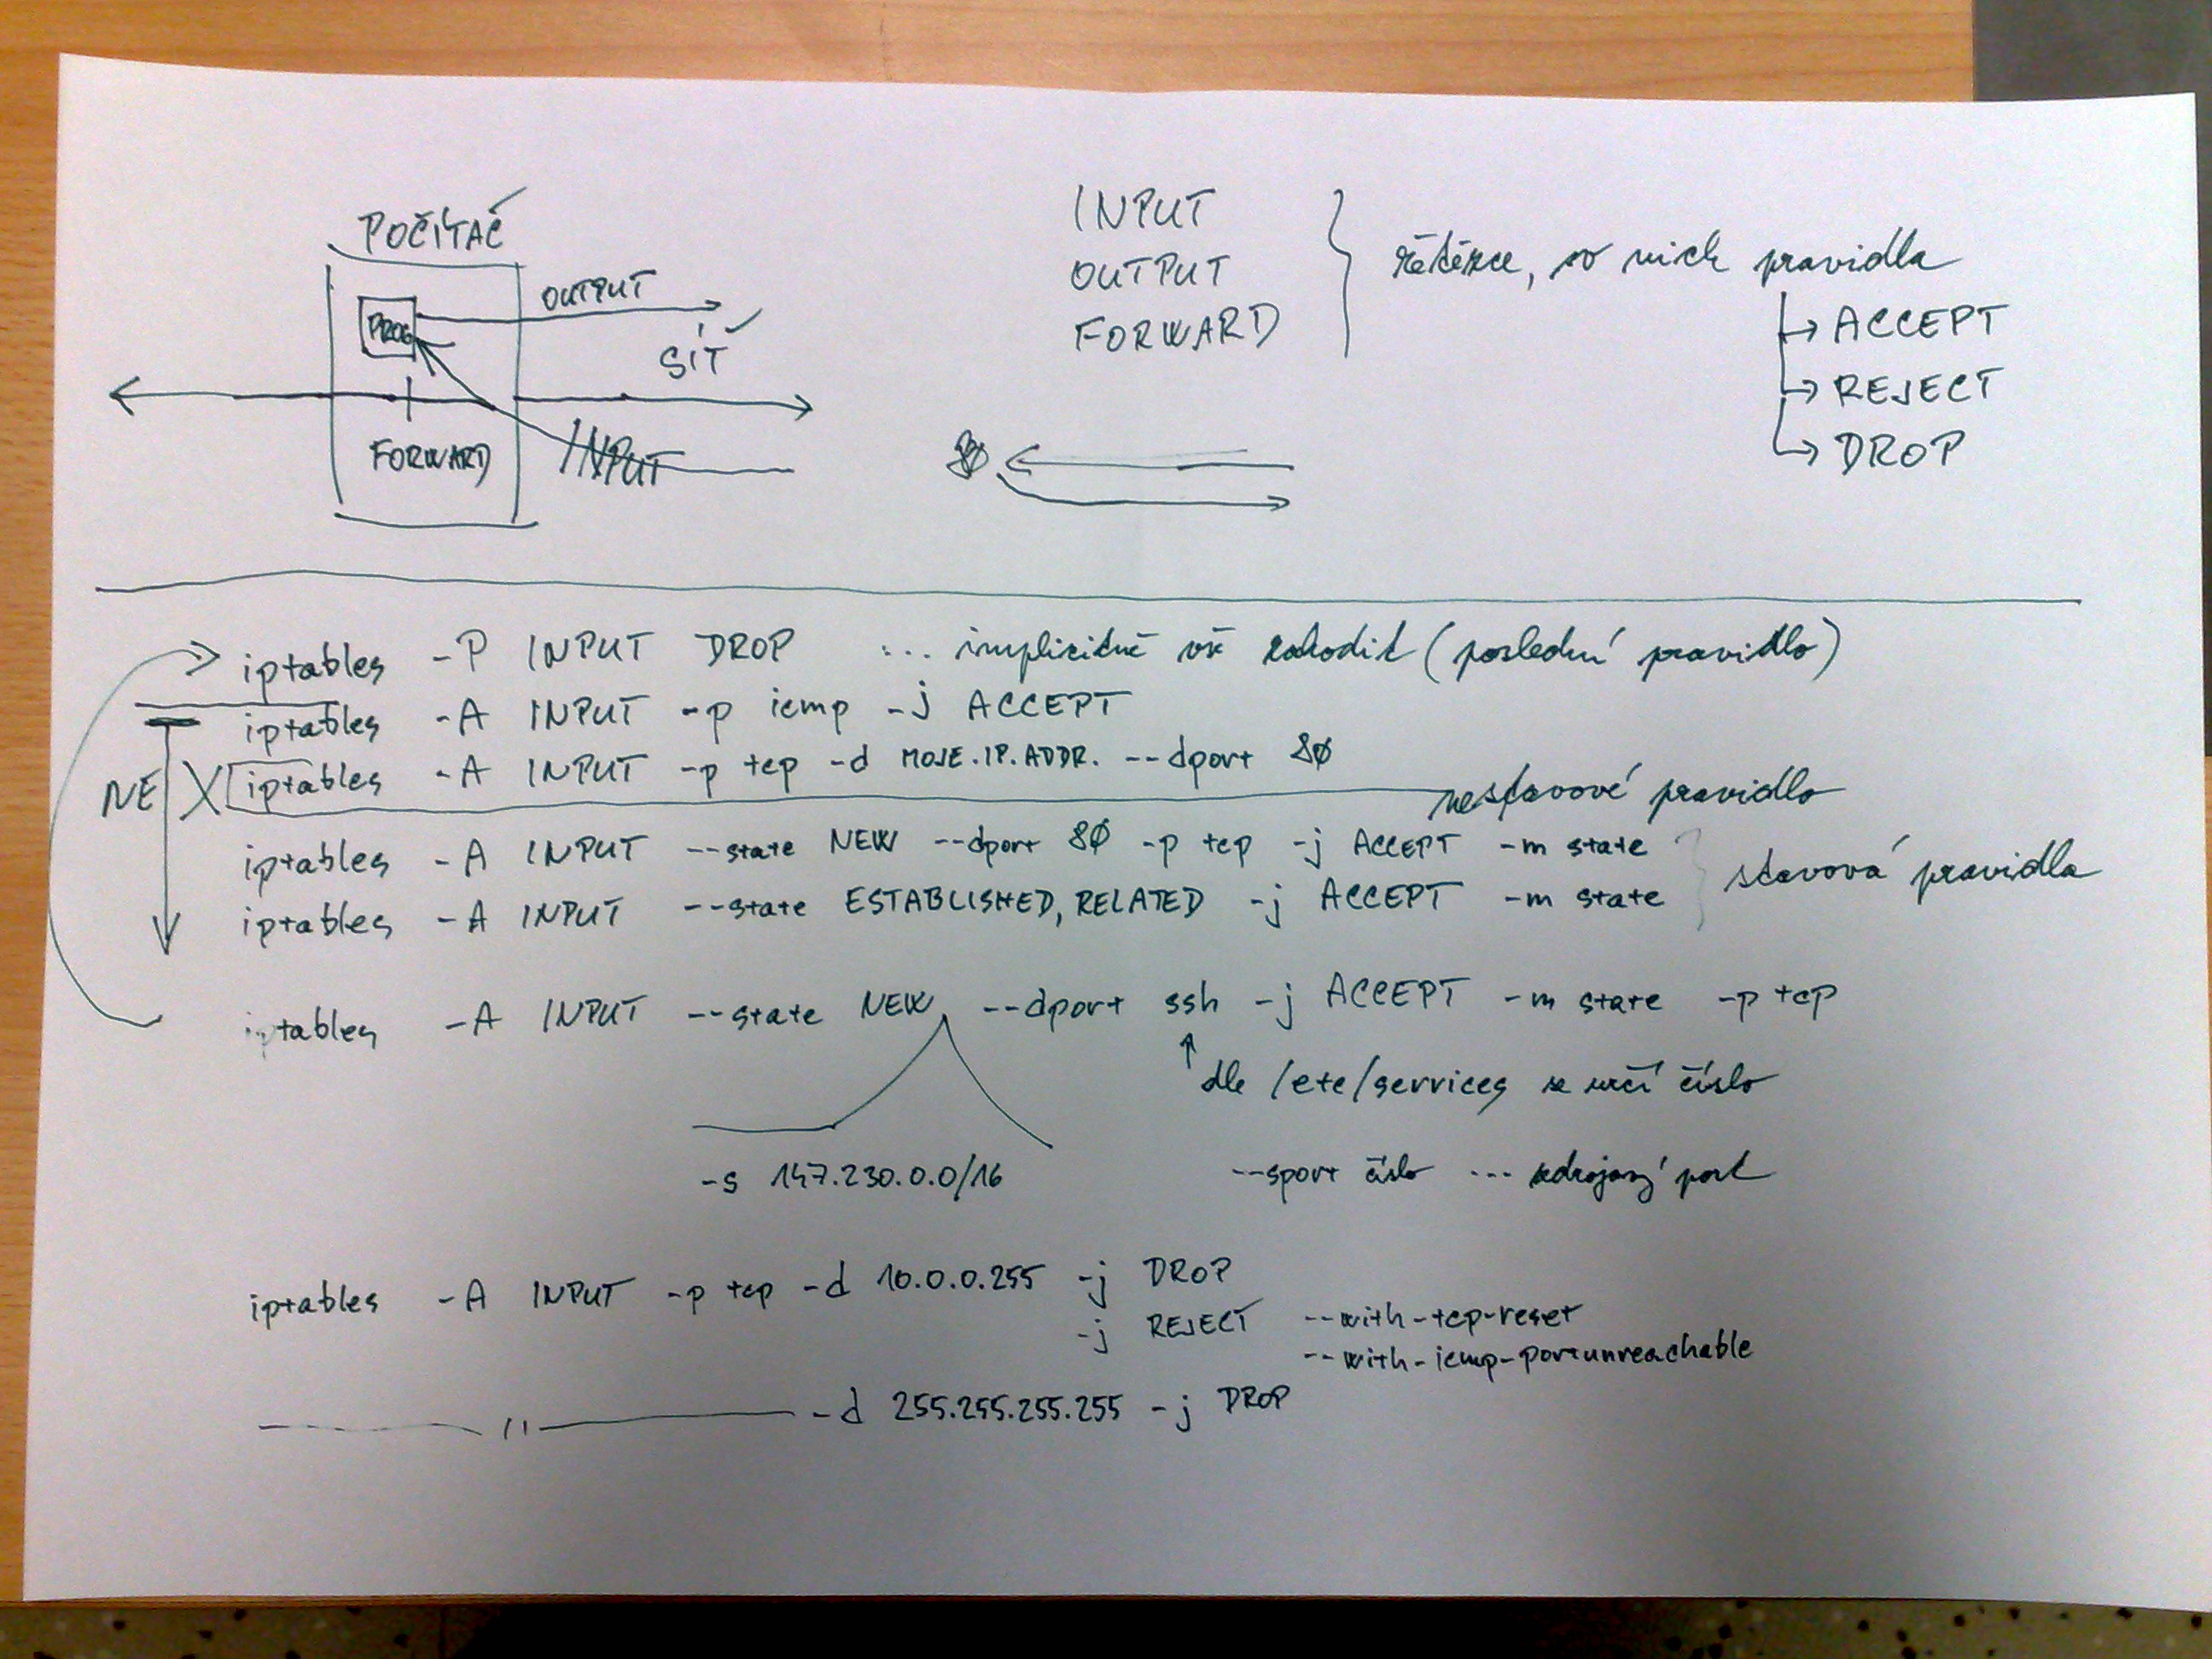 POČÍTAČ
PROG
OUTPUT
SÍŤ
FORWARD
INPUT
INPUT
OUTPUT
FORWARD
řetězce, v nich pravidla
ACCEPT
REJECT
DROP
80
iptables -P INPUT DROP ... implicitně vše zahodit (poslední pravidlo)
iptables -A INPUT -p icmp -j ACCEPT
NE X iptables -A INPUT -p tcp -d MOJE.IP.ADDR. --dport 80
nestavové pravidlo
iptables -A INPUT --state NEW --dport 80 -p tcp -j ACCEPT -m state
iptables -A INPUT --state ESTABLISHED, RELATED -j ACCEPT -m state
stavová pravidla
iptables -A INPUT --state NEW --dport ssh -j ACCEPT -m state -p tcp
dle /etc/services se určí číslo
-s 147.230.0.0/16
--sport číslo ... zdrojový port
iptables -A INPUT -p tcp -d 10.0.0.255 -j DROP
-j REJECT --with-tcp-reset
--with-icmp-portunreachable
—— 11 —— -d 255.255.255.255 -j DROP